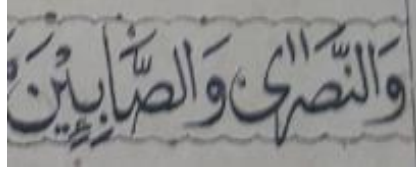 وَالنَّصٰرٰى وَالصَّابِـِٕيْنَ